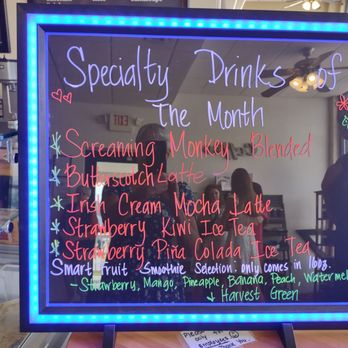 Specialty Drinks of
The Month
* Screaming Monkey Blended
* Butterscotch Latte
* Irish Cream Mocha Latte
* Strawberry Kiwi Ice Tea
* Strawberry Piña Colada Ice Tea
Smart Fruit Smoothie Selection: only comes in 16oz.
- Strawberry, Mango, Pineapple, Banana, Peach, Watermel
Harvest Green
EXIT
Please
only